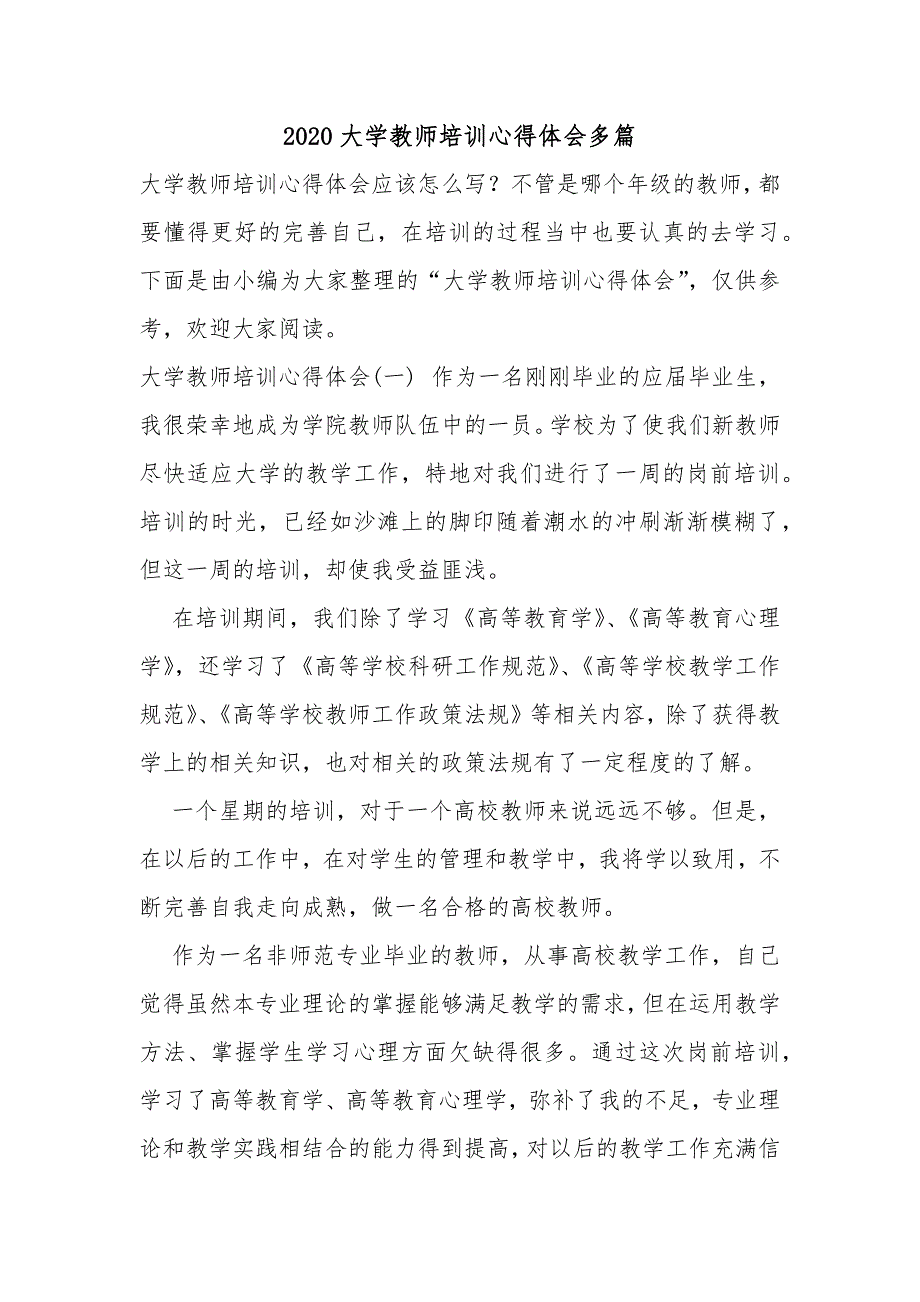 2020 大学教师培训心得体会多篇
大学教师培训心得体会应该怎么写？不管是哪个年级的教师，都
要懂得更好的完善自己，在培训的过程当中也要认真的去学习。
下面是由小编为大家整理的“大学教师培训心得体会”，仅供参
考，欢迎大家阅读。
大学教师培训心得体会(一) 作为一名刚刚毕业的应届毕业生，
我很荣幸地成为学院教师队伍中的一员。学校为了使我们新教师
尽快适应大学的教学工作，特地对我们进行了一周的岗前培训。
培训的时光，已经如沙滩上的脚印随着潮水的冲刷渐渐模糊了，
但这一周的培训，却使我受益匪浅。
在培训期间，我们除了学习《高等教育学》、《高等教育心理
学》，还学习了《高等学校科研工作规范》、《高等学校教学工作
规范》、《高等学校教师工作政策法规》等相关内容，除了获得教
学上的相关知识，也对相关的政策法规有了一定程度的了解。
一个星期的培训，对于一个高校教师来说远远不够。但是，
在以后的工作中，在对学生的管理和教学中，我将学以致用，不
断完善自我走向成熟，做一名合格的高校教师。
作为一名非师范专业毕业的教师，从事高校教学工作，自己
觉得虽然本专业理论的掌握能够满足教学的需求，但在运用教学
方法、掌握学生学习心理方面欠缺得很多。通过这次岗前培训，
学习了高等教育学、高等教育心理学，弥补了我的不足，专业理
论和教学实践相结合的能力得到提高，对以后的教学工作充满信